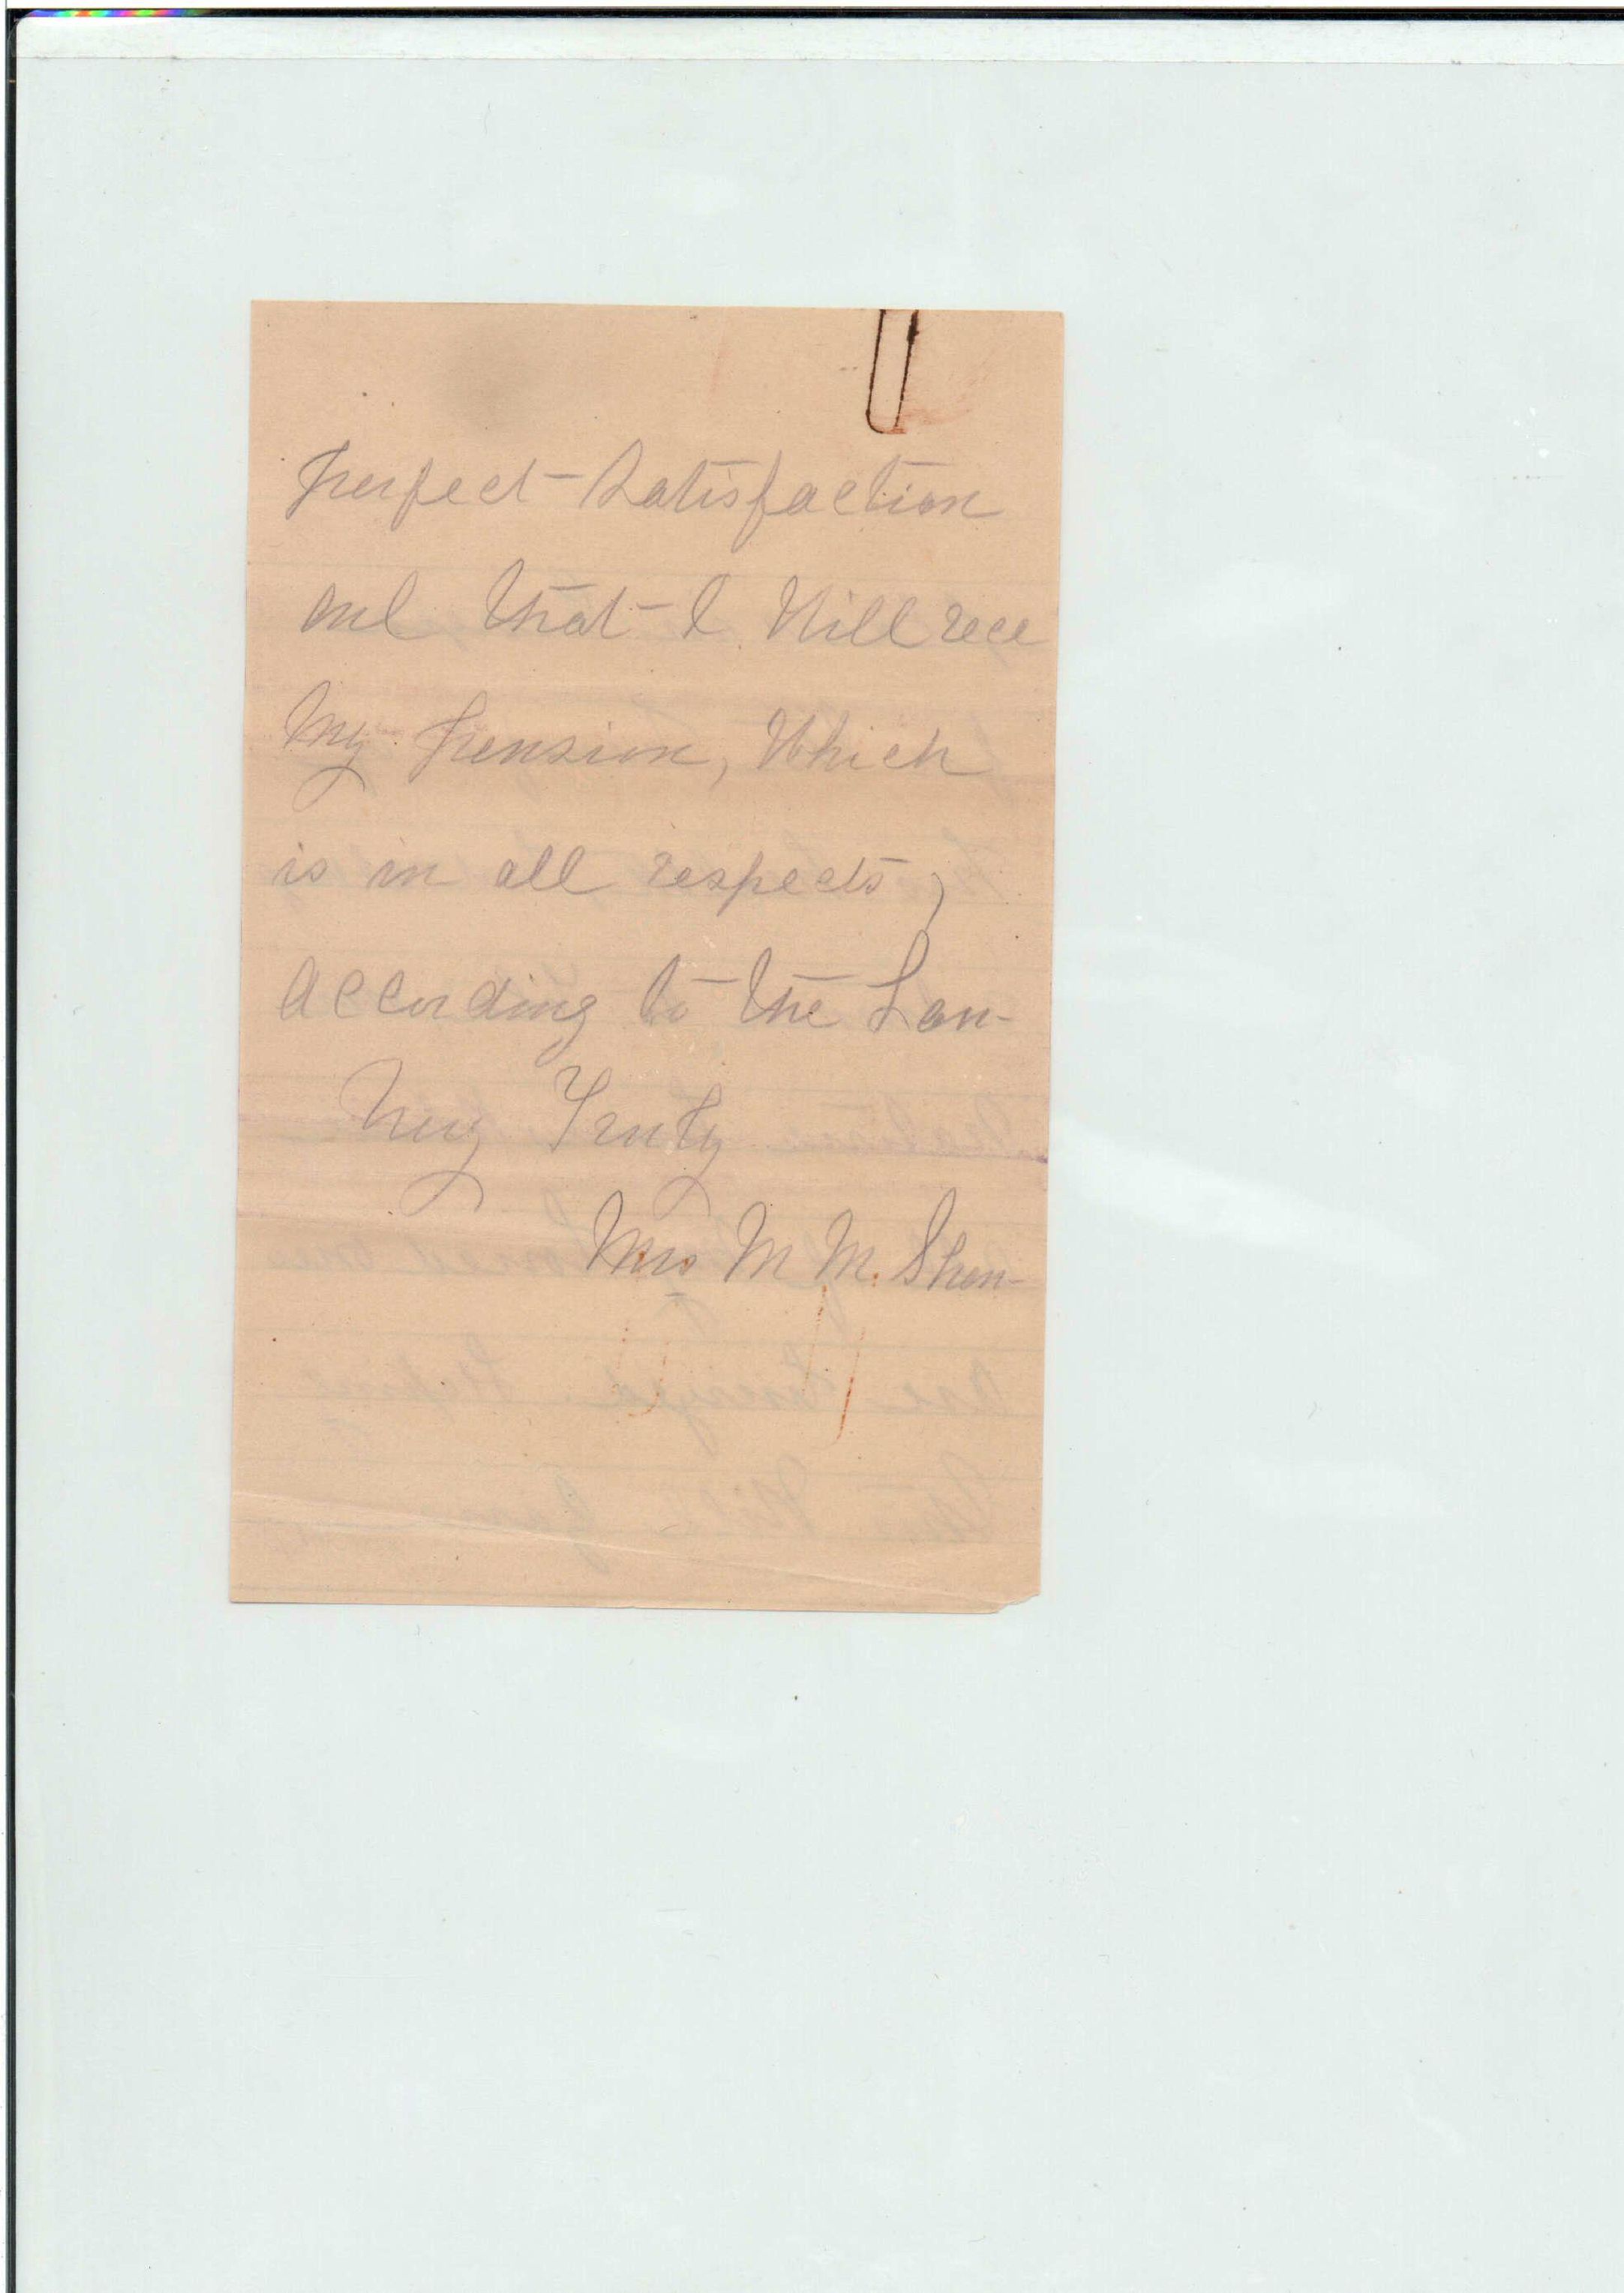 Perfect Satisfaction
and that I Will rece
My Pension, Which
is in all respects,
According to the Law
Very Truly
Mrs M M. Shaw